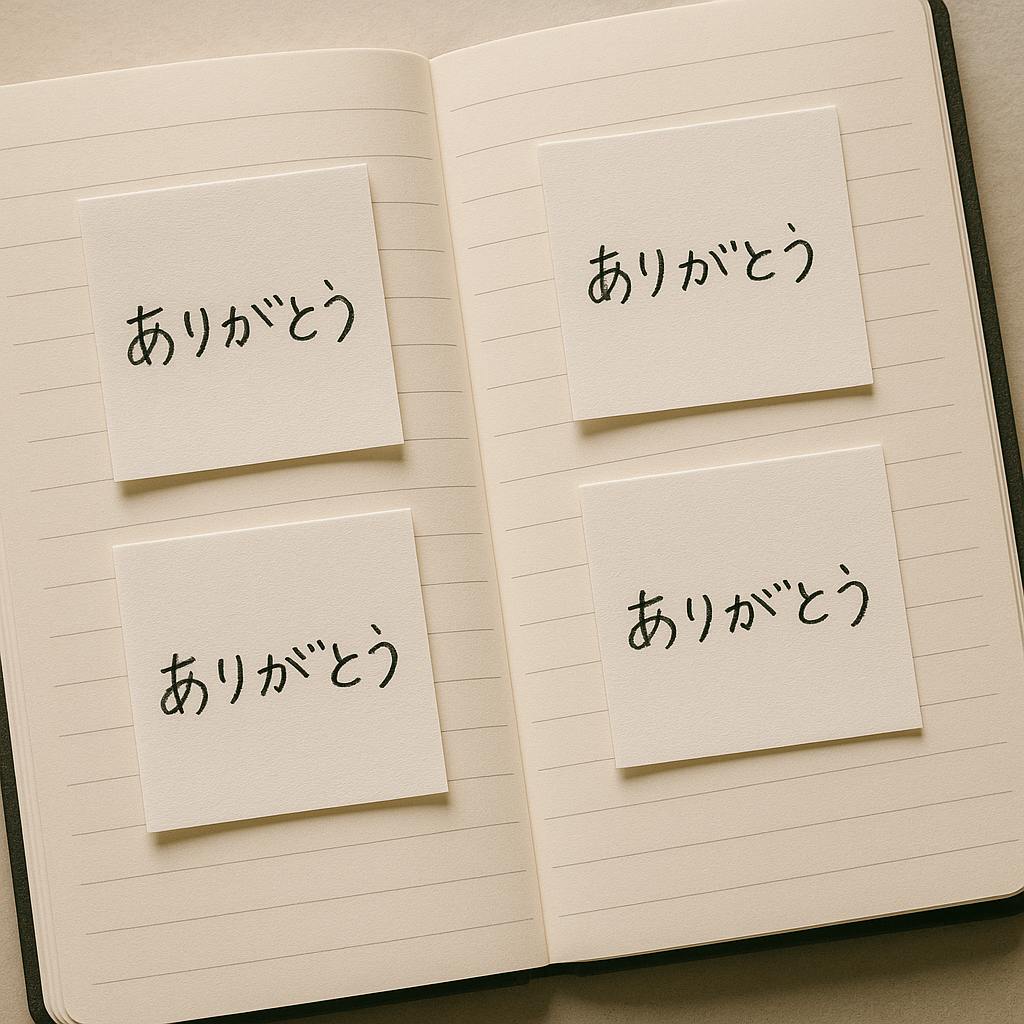 ありがとう
ありがとう
ありがとう
ありがとう